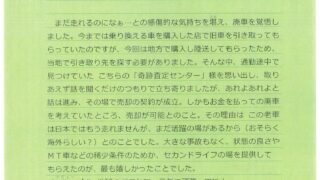 まだ走れるのになぁ…との感傷的な気持ちを堪え、廃車を覚悟し
ました。今までは乗り換える車を購入した店で旧車を引き取っても
らっていたのですが、今回は地方で購入し陸送してもらったため、
当地で引き取り先を探す必要がありました。そんな中、通勤途中で
見つけていた こちらの「奇跡査定センター」様を思い出し、取り
あえず話を聞くだけのつもりで立ち寄りましたが、あれよあれよと
話は進み、その場で売却の契約が成立。しかもお金を払っての廃車
を考えていたところ、売却が可能とのこと。その理由は この老車
は日本ではもう走れませんが、まだ活躍の場があるから（おそらく
海外らしい？）とのことでした。大きな事故もなく、状態の良さや
ＭＴ車などの稀少条件のためか、セカンドライフの場を提供して
もらえたのが、最も嬉しかったことでした。